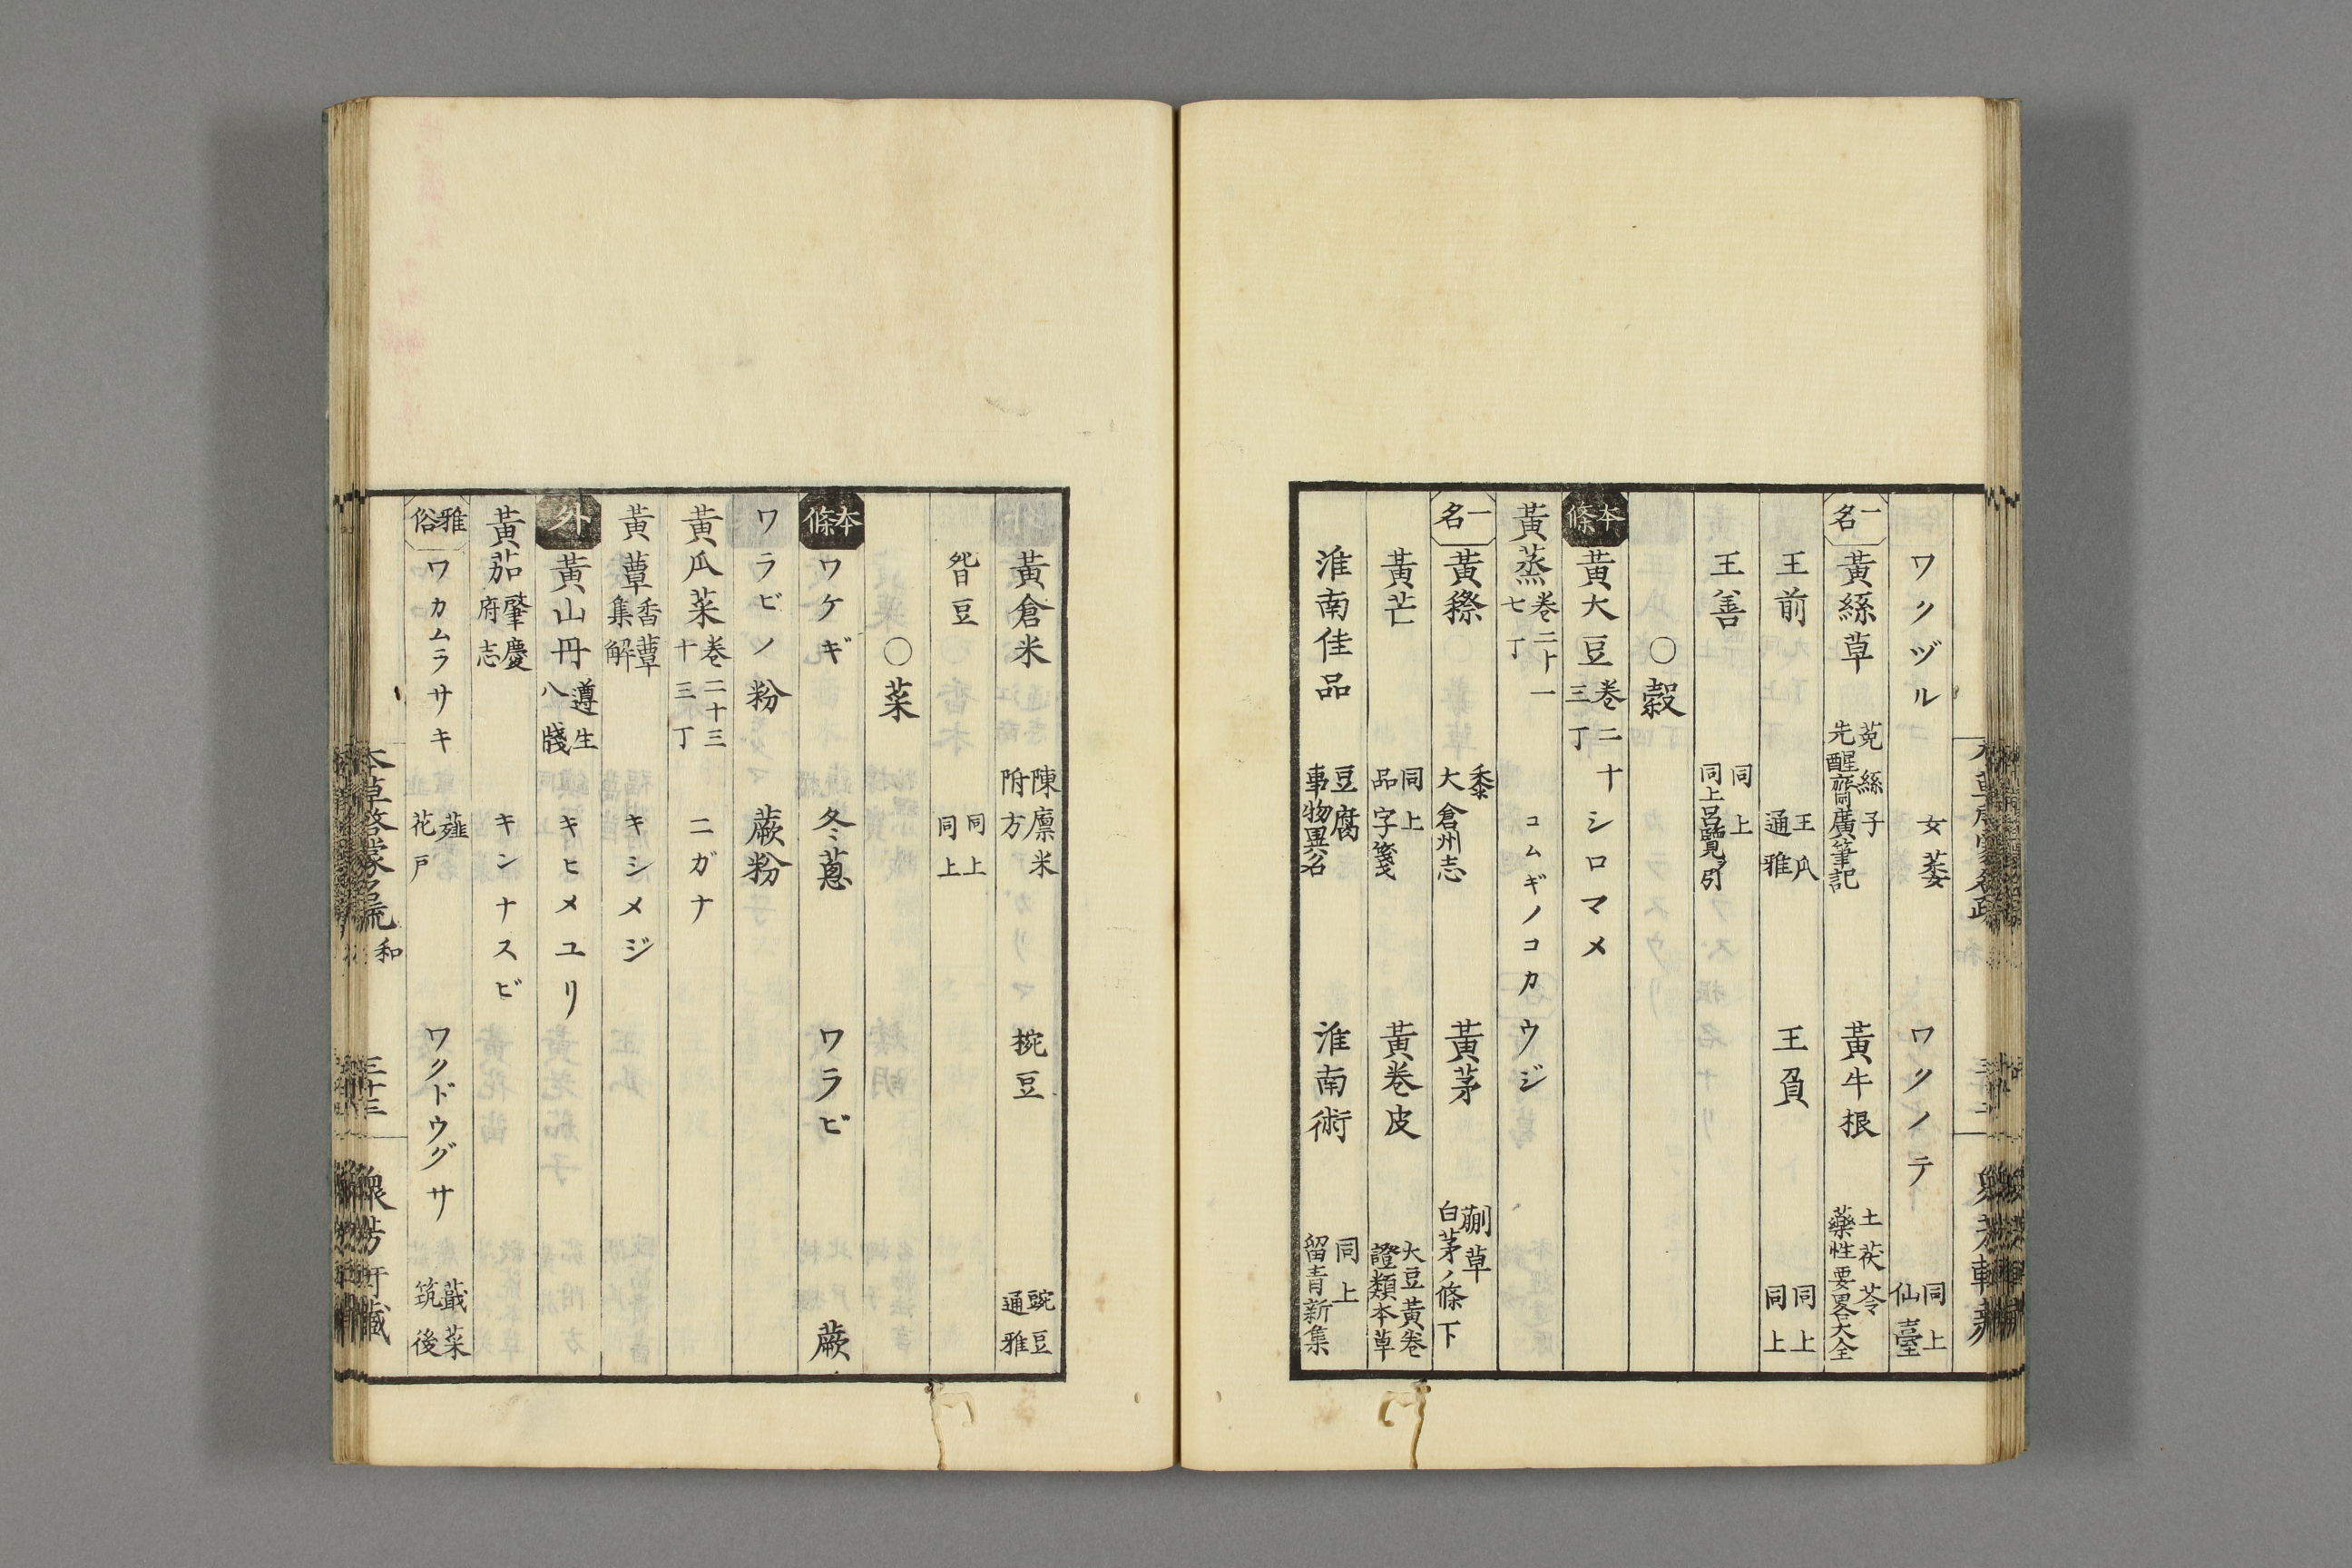 ワクヅル 女萎 ワクノテ 同上 仙臺
一名 黃絲草 菟絲子 先醒齋廣筆記 黃牛根 土茯苓 藥性要畧大全
王前 王瓜 通雅 王負 同上 同上
王善 同上 同上呂覽ヲ引
〇穀
本條 黃大豆 卷二十三丁 シロマメ
黃蒸 卷二十一七丁 コムギノコカウジ
一名 黃穄 黍 大倉州志 黃茅 蒯草 白茅ノ條下
黃芒 同上 品字箋 黃卷皮 大豆黃卷 證類本草
淮南佳品 豆腐 事物異名 淮南術 同上 留青新集
黃倉米 陳廩米 附方 豌豆 豌豆 通雅
豆 同上 同上
〇菜
本條 ワケギ 冬葱 ワラビ 蕨
ワラビノ粉 蕨粉
黃瓜菜 卷二十三十三丁 ニガナ
黃蕈 香蕈集解 キシメジ
外 黃山丹 遵生八牋 キヒメユリ
黃茄 肇慶府志 キンナスビ
雅俗 ワカムラサキ 薤 花戸 ワクドウグサ 蕺菜 筑後
本草啓蒙名疏 和 三十三 衆芳軒藏